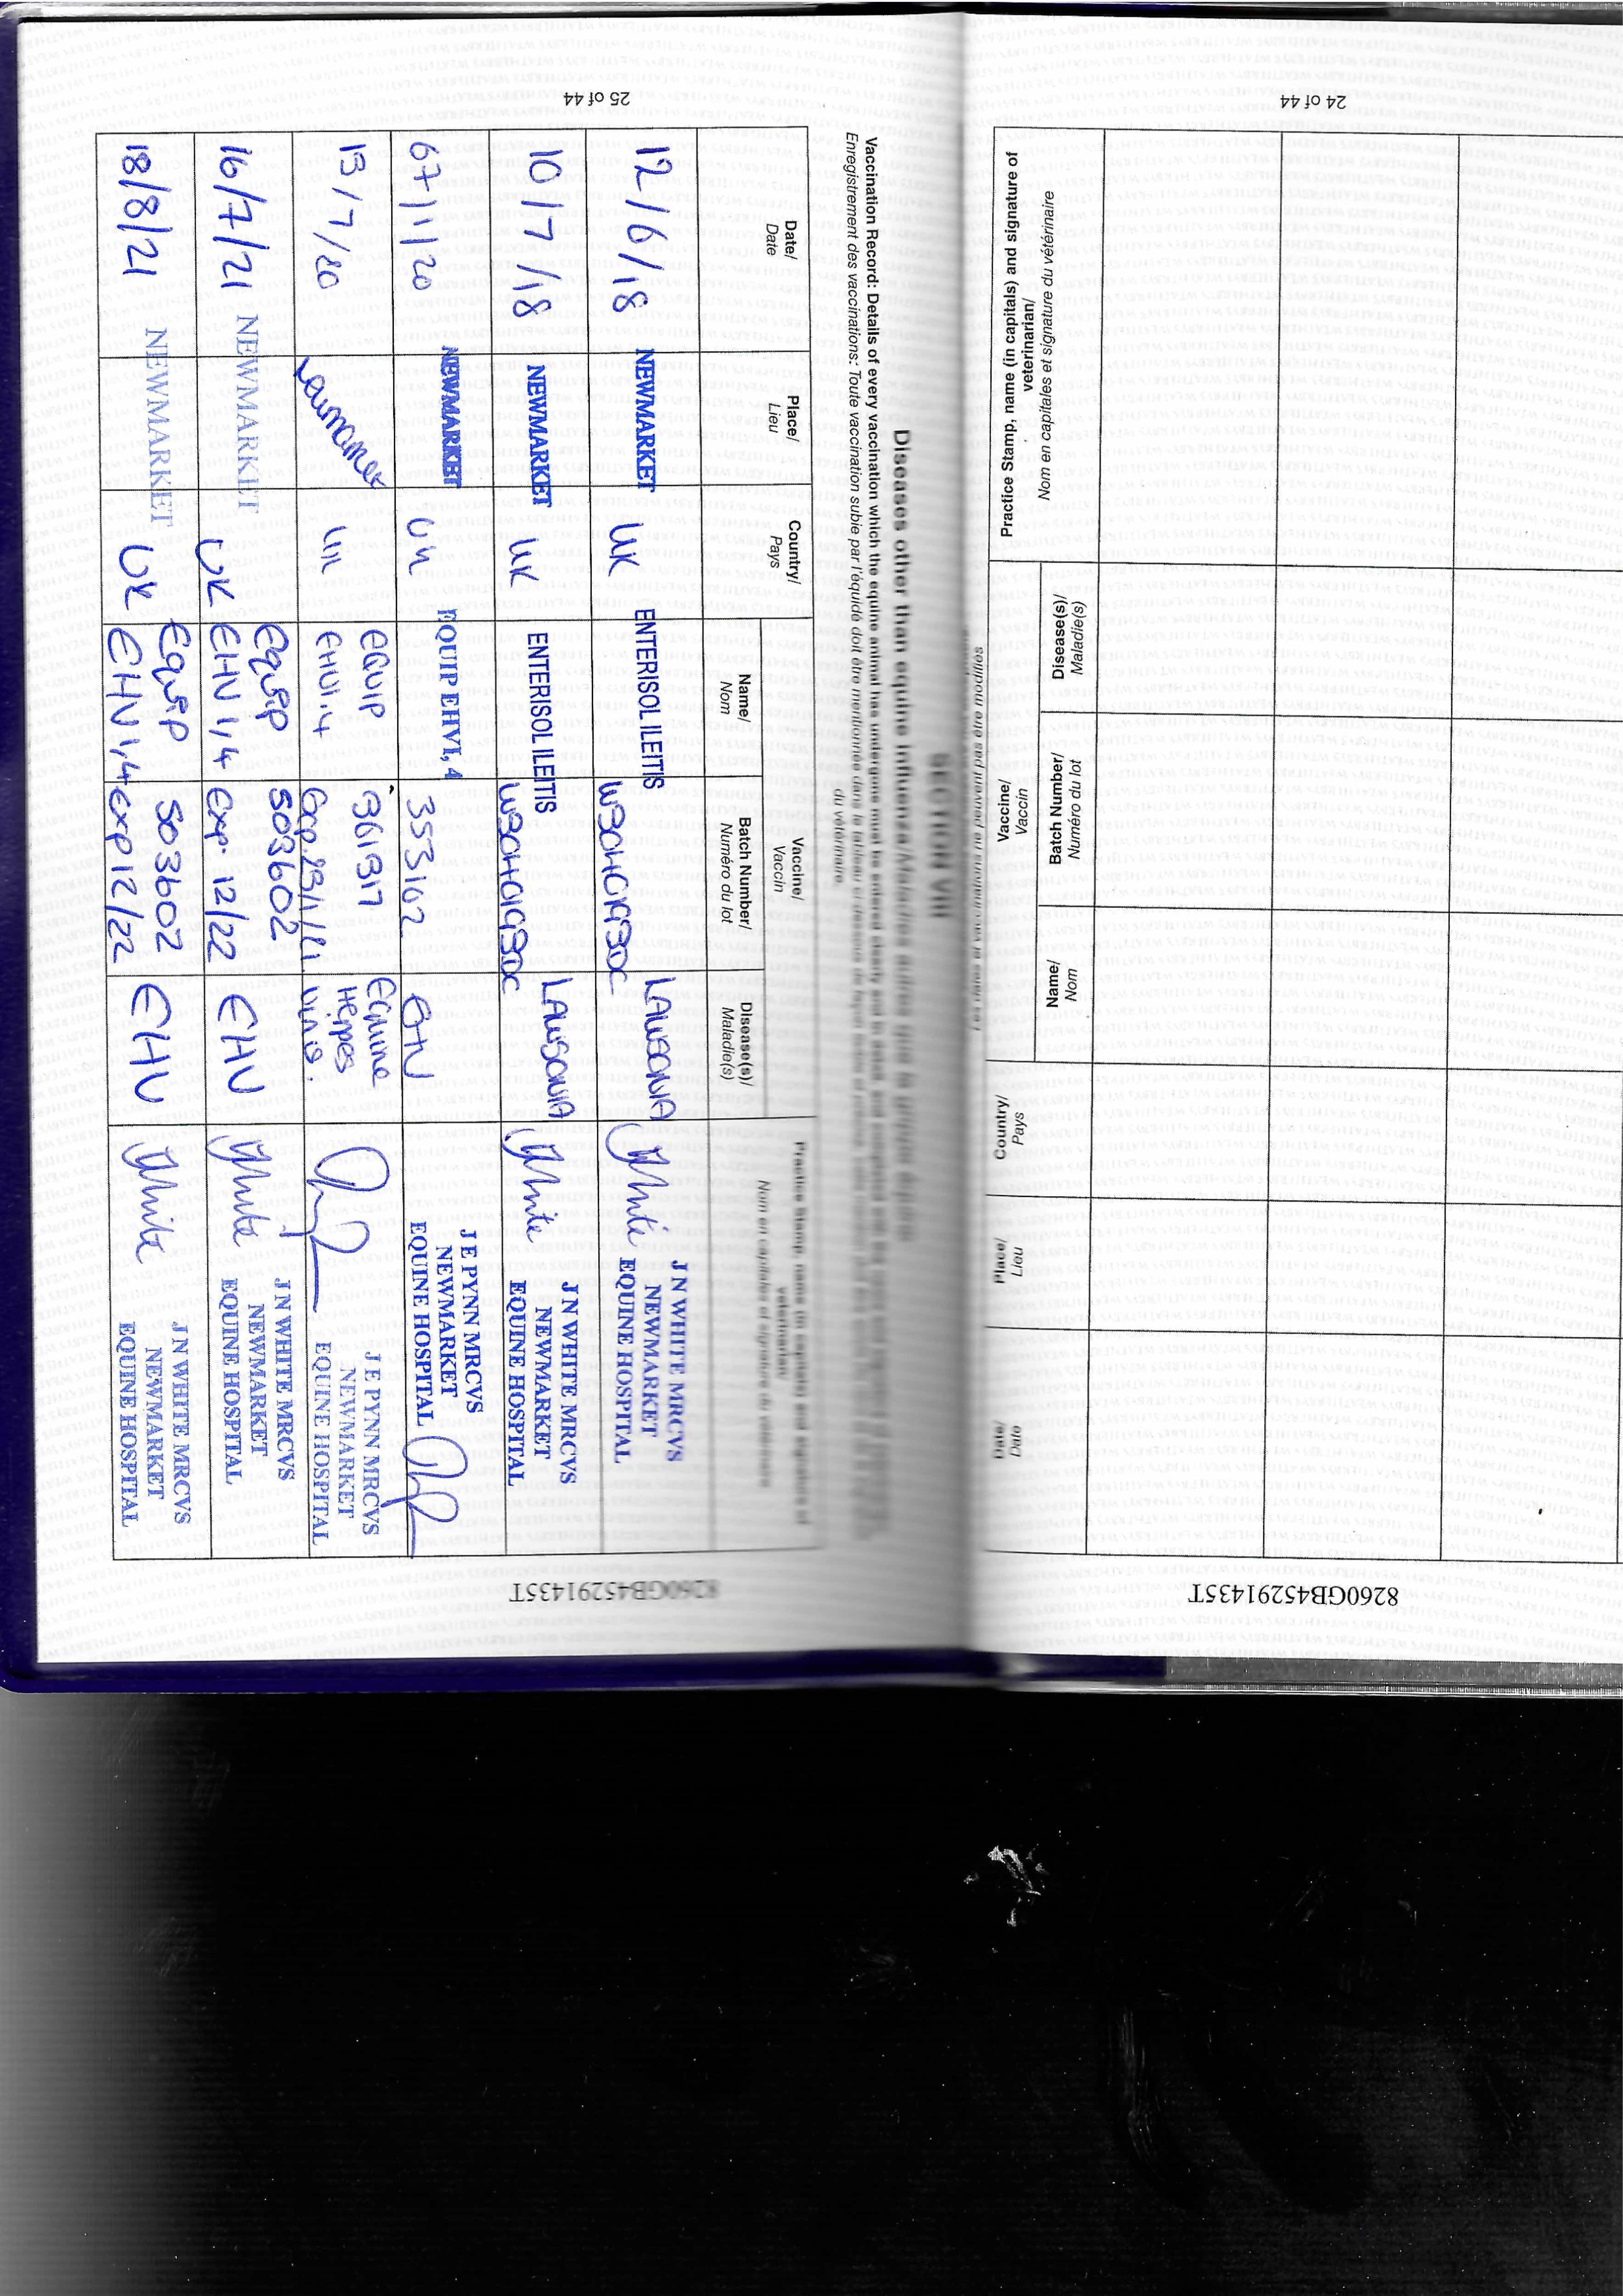 25 of 44
SECTION VIII
Diseases other than equine influenza/Maladies autres que la grippe équine
Vaccination Record: Details of every vaccination which the equine animal has undergone must be entered clearly and in detail, and
Enregistrement des vaccinations: Toute vaccination subie par l'équidé doit être mentionnée dans le tableau ci-dessous de façon
du vétérinaire.
Date/
Date
Place/
Lieu
Country/
Pays
Vaccine/
Vaccin
Name/
Nom
Batch Number/
Numéro du lot
Disease(s)/
Maladie(s)
Practice Stamp, name (in capitals) and signature of
veterinarian/
Nom en capitales et signature du vétérinaire
12/6/18 NEWMARKET UK ENTERISOL ILEITIS LAWSONIA
J N WHITE MRCVS
NEWMARKET
EQUINE HOSPITAL
10/7/18 NEWMARKET UK ENTERISOL ILEITIS LAWSONIA
J N WHITE MRCVS
NEWMARKET
EQUINE HOSPITAL
NEWMARKET UK EQUIP EHV1, 4 353102 EHV
J E PYNN MRCVS
NEWMARKET
EQUINE HOSPITAL
13/7/20 UK EQUIP
EHV1,4
361317
Equine
Herpes
J E PYNN MRCVS
NEWMARKET
EQUINE HOSPITAL
16/7/21 NEWMARKET UK Equip
EHV 1,4
503602
exp. 12/22
EHV
J N WHITE MRCVS
NEWMARKET
EQUINE HOSPITAL
18/8/21 NEWMARKET UK Equip
EHV 1,4
503602
exp 12/22
EHV
J N WHITE MRCVS
NEWMARKET
EQUINE HOSPITAL
8260GB45291435T
24 of 44
Practice Stamp, name (in capitals) and signature of
veterinarian/
Nom en capitales et signature du vétérinaire
Vaccine/
Vaccin
Disease(s)/
Maladie(s)
Batch Number/
Numéro du lot
Name/
Nom
Country/
Pays
Place/
Lieu
Date/
Date
8260GB45291435T